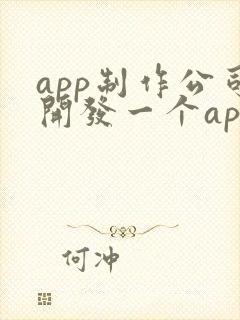 app制作公司
開發一个ap
何冲